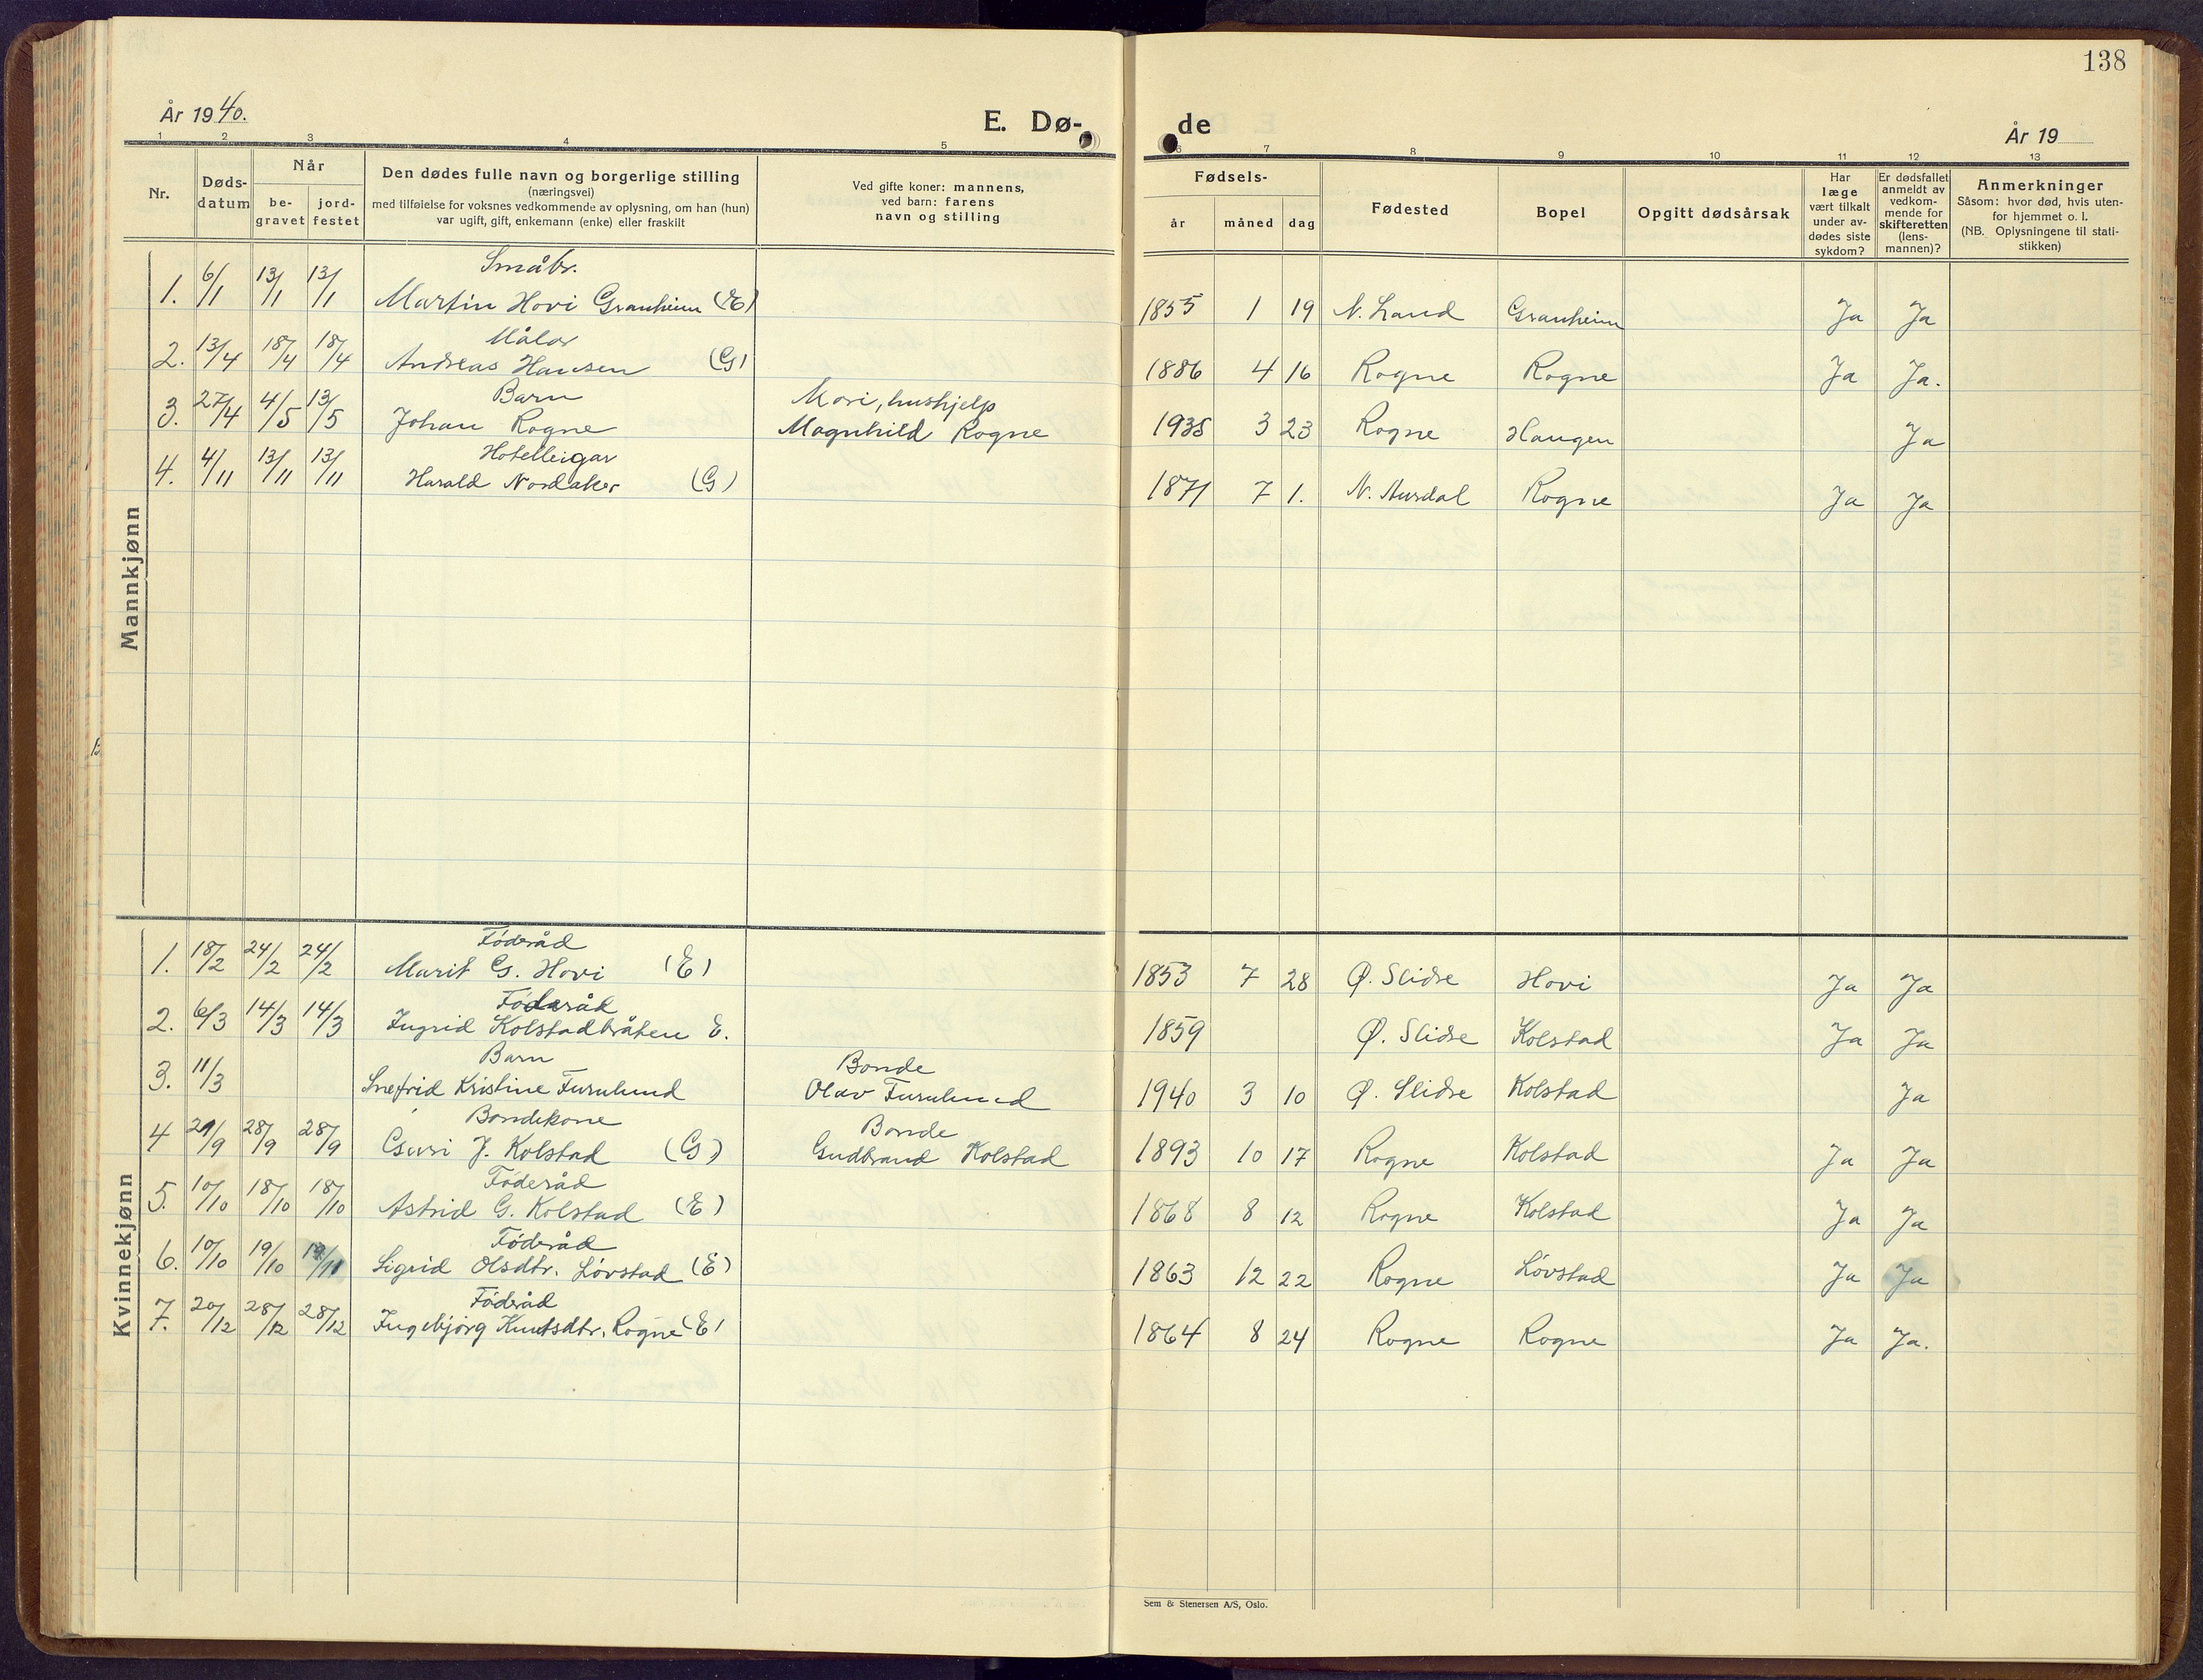 138
År 1940.
E. Dø-
de
År 19
1 2 3 4 5
6 7 8 9 10 11 12 13
Nr.
Døds-
datum
Når
be-
gravet
jord-
festet
Den dødes fulle navn og borgerlige stilling
(næringsvei)
med tilføielse for voksnes vedkommende av oplysning, om han (hun)
var ugift, gift, enkemann (enke) eller fraskilt
Ved gifte koner: mannens,
ved barn: farens
navn og stilling
Fødsels-
år måned dag
Fødested
Bopel
Opgitt dødsårsak
Har
læge
vært tilkalt
under av-
dødes siste
sykdom?
Er dødsfallet
anmeldt av
vedkom-
mende for
skifteretten
(lens-
mannen)?
Anmerkninger
Såsom: hvor død, hvis uten-
for hjemmet o. l.
(NB. Oplysningene til stati-
stikken)
Mannkjønn
Småbr.
1. 6/1 13/1 13/1 Martin Hovi Granheim (E) 1855 1 19 N. Land Granheim Ja Ja
Målar
2. 13/4 18/4 18/4 Andreas Hansen (G) 1886 4 16 Rogne Rogne Ja Ja.
Barn Mori, hushjelp
3. 27/4 4/5 13/5 Johan Rogne Magnhild Rogne 1938 3 23 Rogne Haugen Ja
Hotelleigar
4. 4/11 13/11 13/11 Harald Nordaker (G) 1871 7 1. N. Aurdal Rogne Ja Ja
Kvinnekjønn
Föderåd
1. 18/2 24/2 24/2 Marit G. Hovi (E) 1853 7 28 Ø. Slidre Hovi Ja Ja
Föderåd
2. 6/3 14/3 14/3 Ingrid Kolstadbråten E. 1859 Ø. Slidre Kolstad Ja Ja
Barn Bonde
3. 11/3 Snefrid Kristine Furulund Olav Furulund 1940 3 10 Ø. Slidre Kolstad Ja
Bondekone Bonde
4 21/9 28/9 28/9 J. Kolstad (G) Gudbrand Kolstad 1893 10 17 Rogne Kolstad Ja Ja
Föderåd
5. 10/10 18/10 18/10 Astrid G. Kolstad (E) 1868 8 12 Rogne Kolstad Ja Ja
Föderåd
6. 10/10 19/10 Sigrid Olsdtr. Lövstad (E) 1863 12 22 Rogne Lövstad Ja Ja
Föderåd
7. 20/12 28/12 28/12 Ingebjörg Knutsdtr. Rogne (E) 1864 8 24 Rogne Rogne Ja Ja.
Sem & Stenersen A/S, Oslo.